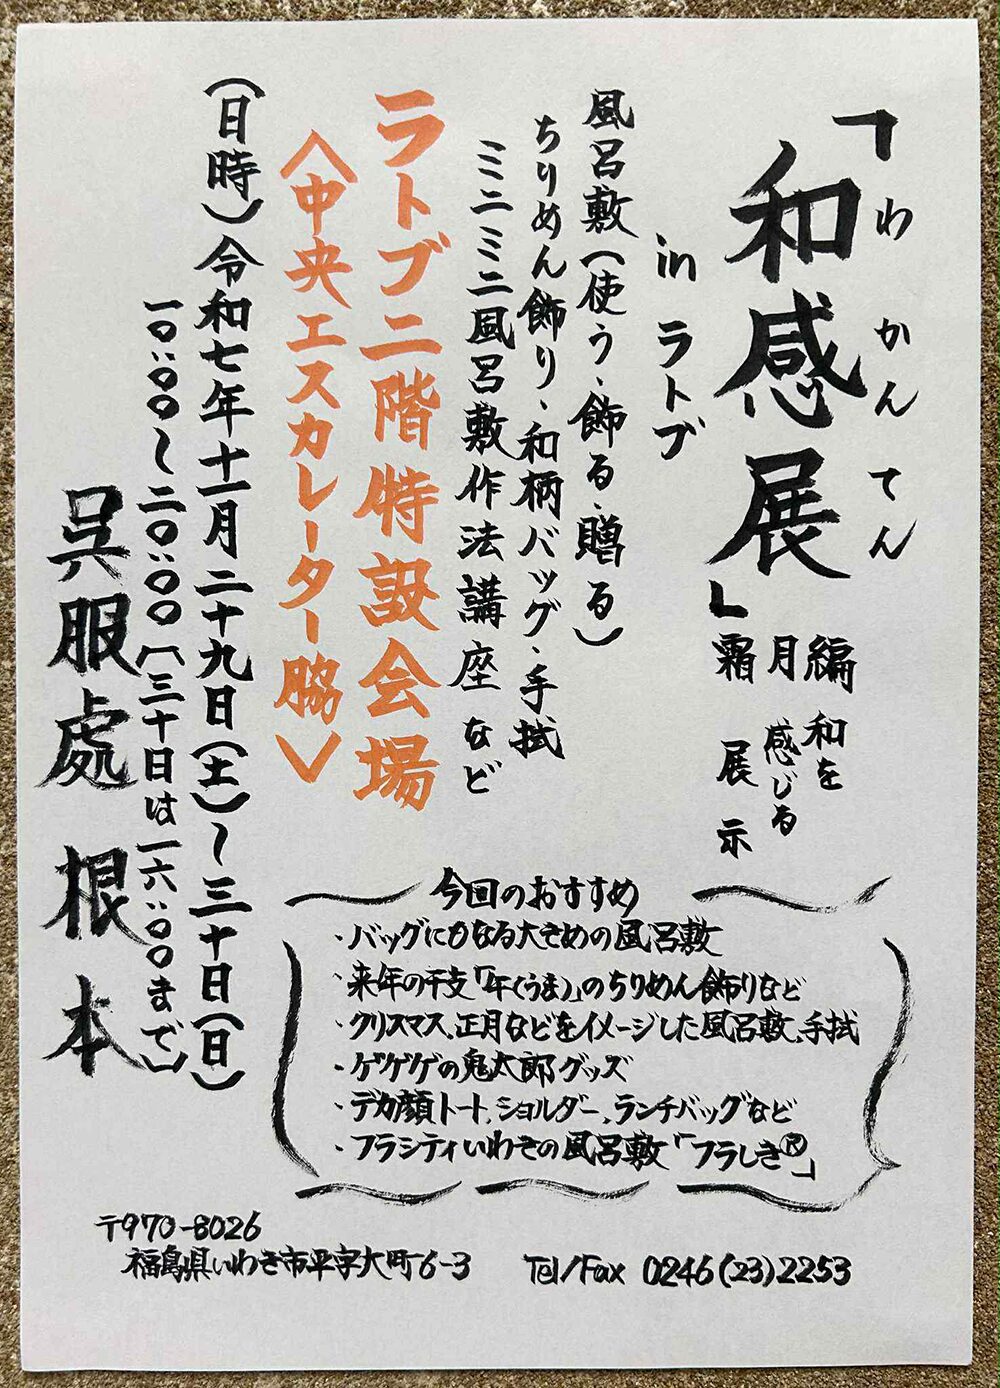 「和感展」
わかんてん
霜月編
和を
感じる
展示
in ラトブ
風呂敷(使う、飾る、贈る)
ちりめん飾り、和柄バッグ、手拭
ミニミニ風呂敷作法講座など
ラトブ二階特設会場
〈中央エスカレーター脇〉
(日時)令和七年十一月二十九日(土)〜三十日(日)
一〇:〇〇〜二〇:〇〇〔三十日は一六:〇〇まで〕
呉服處 根本
今回のおすすめ
・バッグにもなる大きめの風呂敷
・来年の干支「午(うま)」のちりめん飾りなど
・クリスマス、正月などをイメージした風呂敷、手拭
・ゲゲゲの鬼太郎グッズ
・デカ顔トート、ショルダー、ランチバッグなど
・フラシティいわきの風呂敷「フラしき®」
〒970-8026
福島県いわき市平字大町6-3 Tel/Fax 0246(23)2253